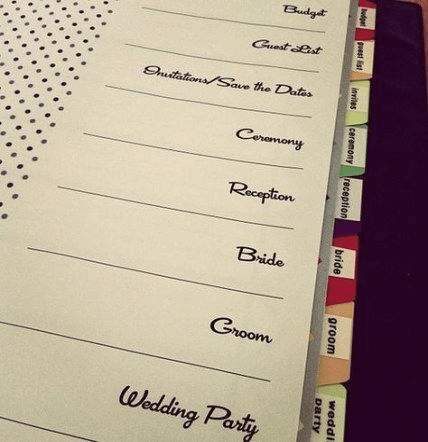 Budget
Guest List
Invitations/Save the Dates
Ceremony
Reception
Bride
Groom
Wedding Party
budget
guest list
invites
ceremony
reception
bride
groom
party